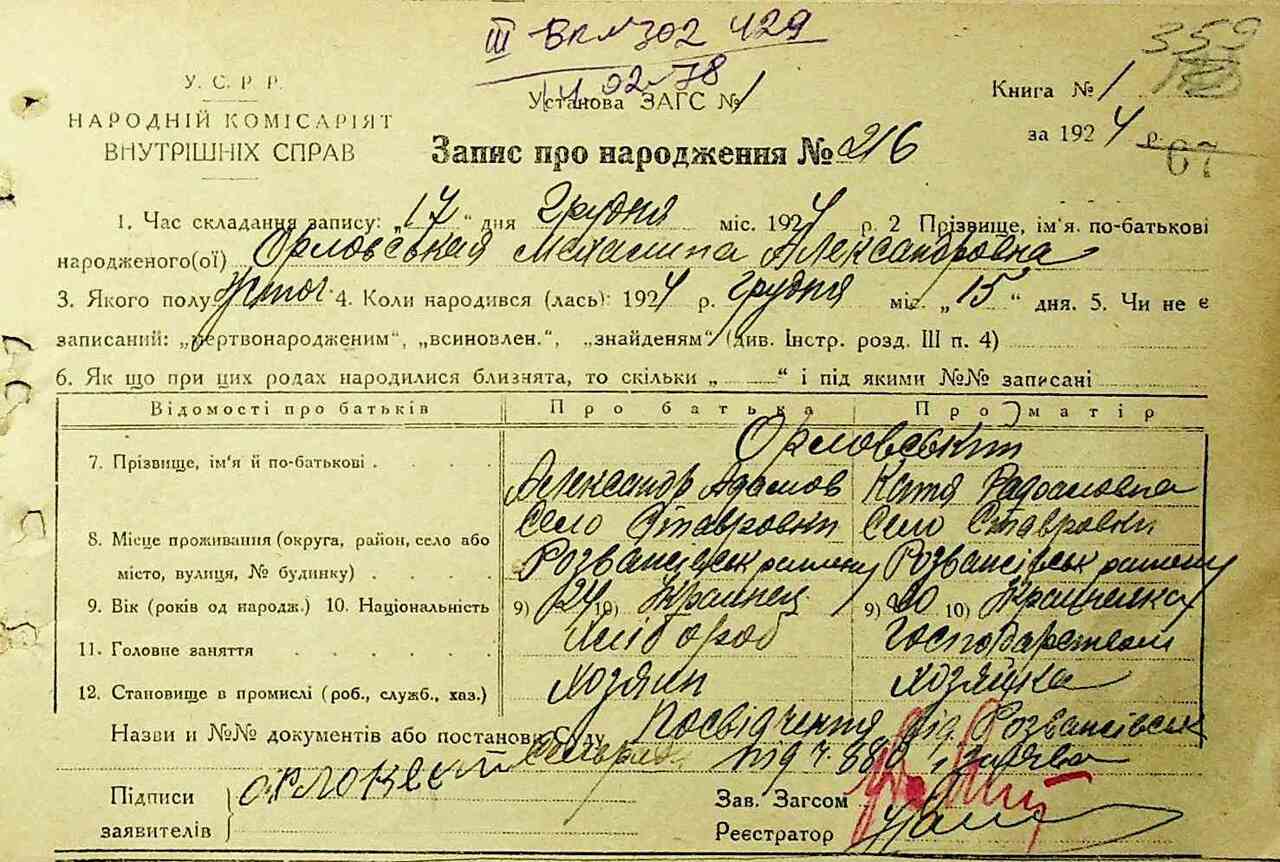 III
429
У. С. Р. Р.
Установа ЗАГС № 1
Книга № 1
359
НАРОДНІЙ КОМІСАРІЯТ
за 1924 р.
ВНУТРІШНІХ СПРАВ
Запис про народження № 216
67
1. Час складання запису: „17“ дня Грудня міс. 1924 р. 2 Прізвище, ім'я. по-батькові
народженого(ої) Орловськая Александровна
3. Якого полу 4. Коли народився (лась): 1924 р. Грудня міс. „15“ дня. 5. Чи не є
записаний: „мертвонародженим“, „всиновлен.“, „знайденям“ (див. Інстр. розд. III п. 4)
6. Як що при цих родах народилися близнята, то скільки „ “ і під якими №№ записані
Відомості про батьків Про батька Про матір
Орловськи
7. Прізвище, ім'я й по-батькові
Александр Адамов Катя
Село Ставровки Село Ставровки
8. Місце проживання (округа, район, село або
місто, вулиця, № будинку)
Розвансівськ району Розвансівськ району
9. Вік (років од народж.) 10. Національність 9) 24 10) Украінец 9) 20 10) Украинка
11. Головне заняття Хлібороб
12. Становище в промислі (роб., служб., хаз.) Хозяин Хозяйка
Назви и №№ документів або постанови Суду Посвідчення від Розвансівськ
Підписи
заявителів
Зав. Загсом
Реєстратор